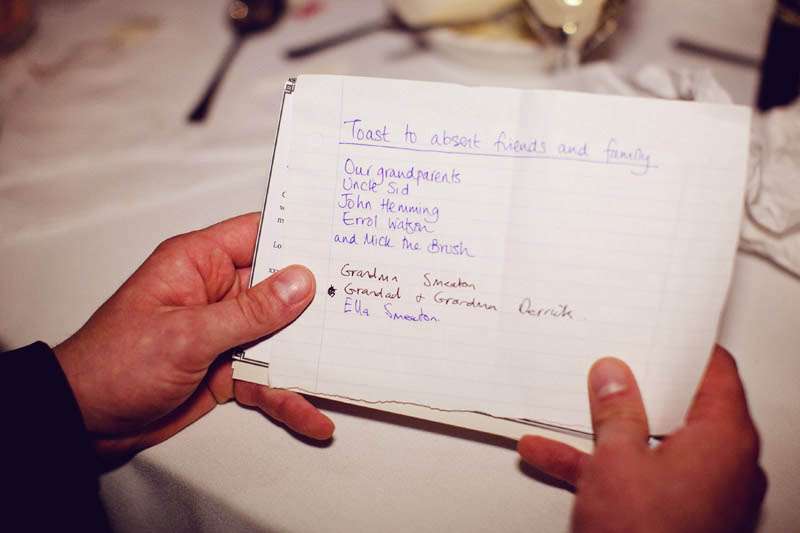 Toast to absent friends and family
Our grandparents
Uncle Sid
John Hemming
Errol Watson
and Mick the Brush
Grandma Smeaton
Grandad + Grandma Derrick
Ella Smeaton